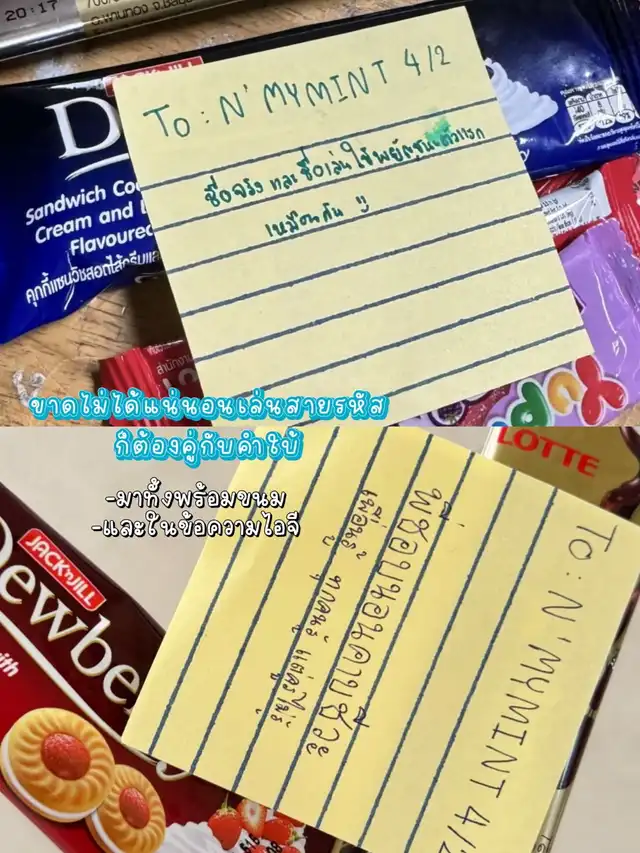 20:17
JACK'nJILL
TO : N' MYMINT 4/2
ชื่อจริง และ ชื่อเล่น ใช้พยัญชนะตัวแรก
เหมือนกัน
Sandwich Coo
Cream and
Flavoured
คุกกี้แซนวิชสอดไส้ครีมและ
สำนักงาน
ขาดไม่ได้แน่นอนเล่นสายรหัส
ก็ต้องคู่กับคำใบ้
-มาทิ้งพร้อมขนม
-และในข้อความไอจี
LOTTE
JACK'nJILL
Dewbe
with
TO : N' MYMINT 4/2
พี่ชอบนอนคาบชีวะ
เพื่อนรู้ ทุกคนรู้ แต่ครูไม่รู้